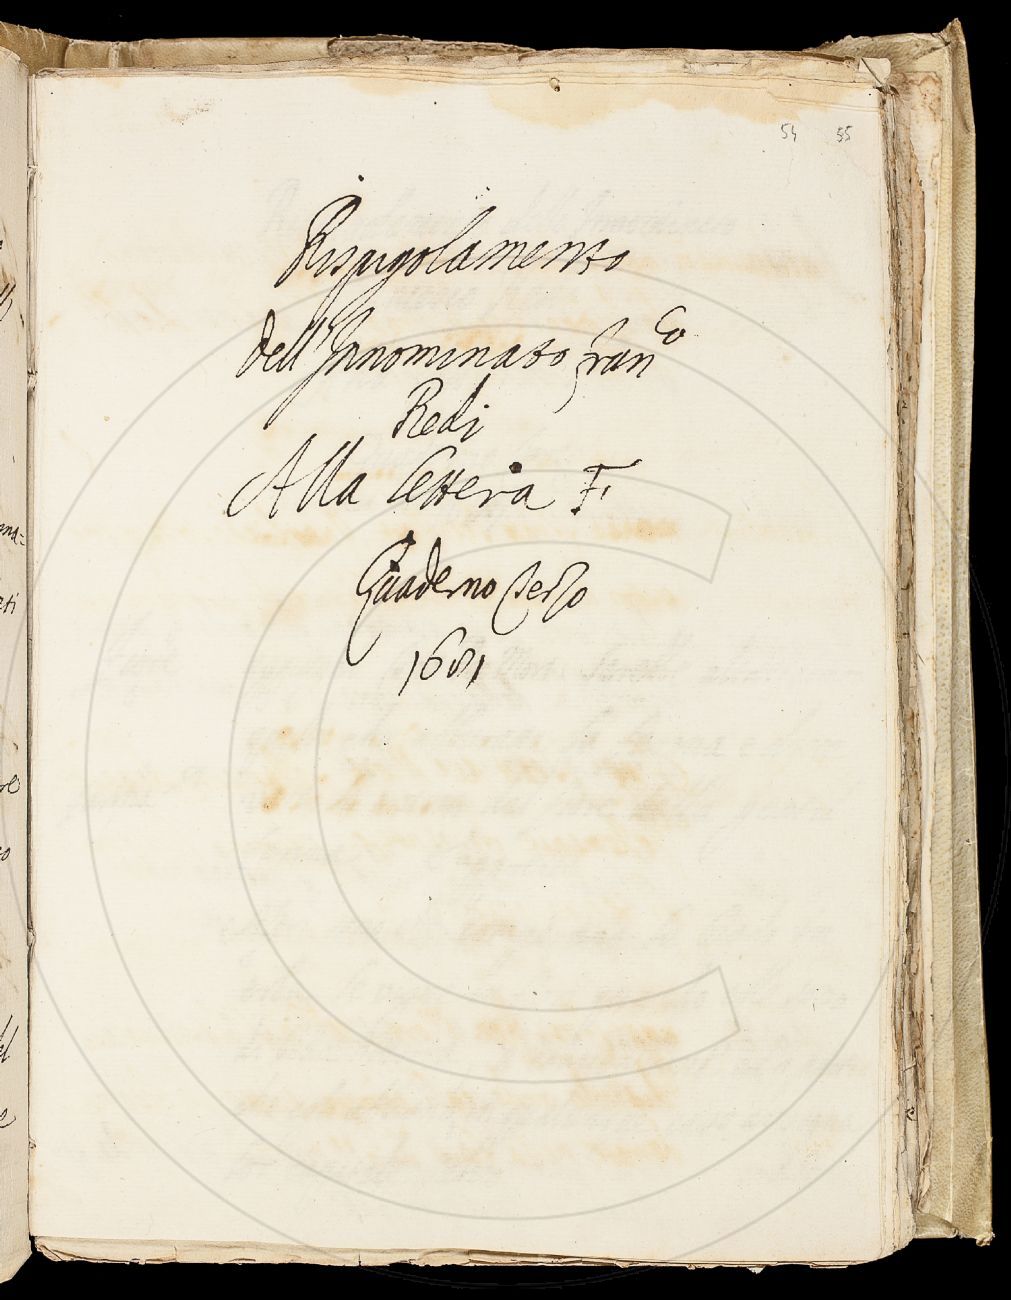 54 55
Rispigolamento
dell'Innominato Fran^co
Redi
Alla lettera F.
Quaderno Terzo
1681